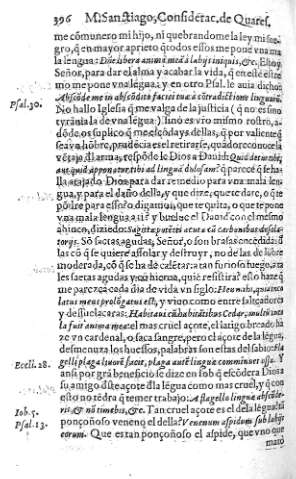 396 M. Sanctiago, Considerac. de Quares.
me comunero mi hijo, ni quebrandome la ley mi suegro,
q̃ en mayor aprieto q̃ todos essos me pone vna ma
la lengua: Dñe libera animã meã à labijs iniquis, &c. Ehoy
Señor, para dar el alma y acabar la vida, q̃ en este estre
mo me pone vna lengua; y en otro Psal. le auia dicho:
Psal. 30.
Abscõde me in abscõdito faciei tuæ à cõtradictione linguarũ.
No hallo Iglesia q̃ me valga de la justicia (q̃ no es sino
tyrania la de vna lẽgua) sino es vr̃o mismo rostro, a-
dõde os suplico q̃ me escõdays dellas, q̃ por valiente q̃
sea vn hõbre, prudẽcia es el retirarse, quãdo reconoce la
vẽtaja del arma, respõde le Dios a Dauid: Quid detur tibi,
aut quid apponatur tibi ad linguã dolosam? q̃ parece q̃ se ha
lla atajado Dios para dar remedio para vna mala len
gua, y para el daño della, y que dize, que te daré, o q̃ te
põdré para essso? o digamos, que te quita, o que te pone
vna mala lengua a ti? y buelue el David con el mesmo
ahinco, diziedo: Sagittæ potẽtis acutæ cũ carbonibus desola-
torijs. Sõ saetas agudas, Señor, o son brasas encẽdidas
las cõ q̃ se quiere assolar y destruyr, no de las de lũbre
moderada, cõ q̃ se ha de calẽtar: a vn furioso fuego, a vna
les saetas agudas y cõ hierua, quiẽ resistira? esso haze q̃
me parezca cada dia de vida vn siglo: Heu mihi, quia inco
latus meus prolõgatus est, y viuo como entre salteadores
y dessuellacaras: Habitaui cũ habitãtibus Cedar, multũ inco
la fuit anima mea: el mas cruel açote, el latigo breado ha
ze vn cardenal, o saca sangre, pero el açote de la lẽgua,
desmenuza los huessos, palabras son estas del sabio: Fla-
Eccli. 28.
gelli plaga liuorẽ facit, plaga autẽ linguæ comminuet ossa. Y
ansi por grã beneficio se dize en Iob q̃ escõdera Dios a
su amigo diste açote dla lẽgua como mas cruel, y q̃ con
esto no tẽdra q̃ temer trabajo: A flagello linguæ abscõde-
Iob. 5.
ris & nõ timebis, &c. Tan cruel açote es el de la lẽgua: tã
Psal. 13.
ponçoñoso venenq̃ el della: Venenum aspidum sub labijs
eorum. Que es tan ponçoñoso el aspide, que vno que
mato